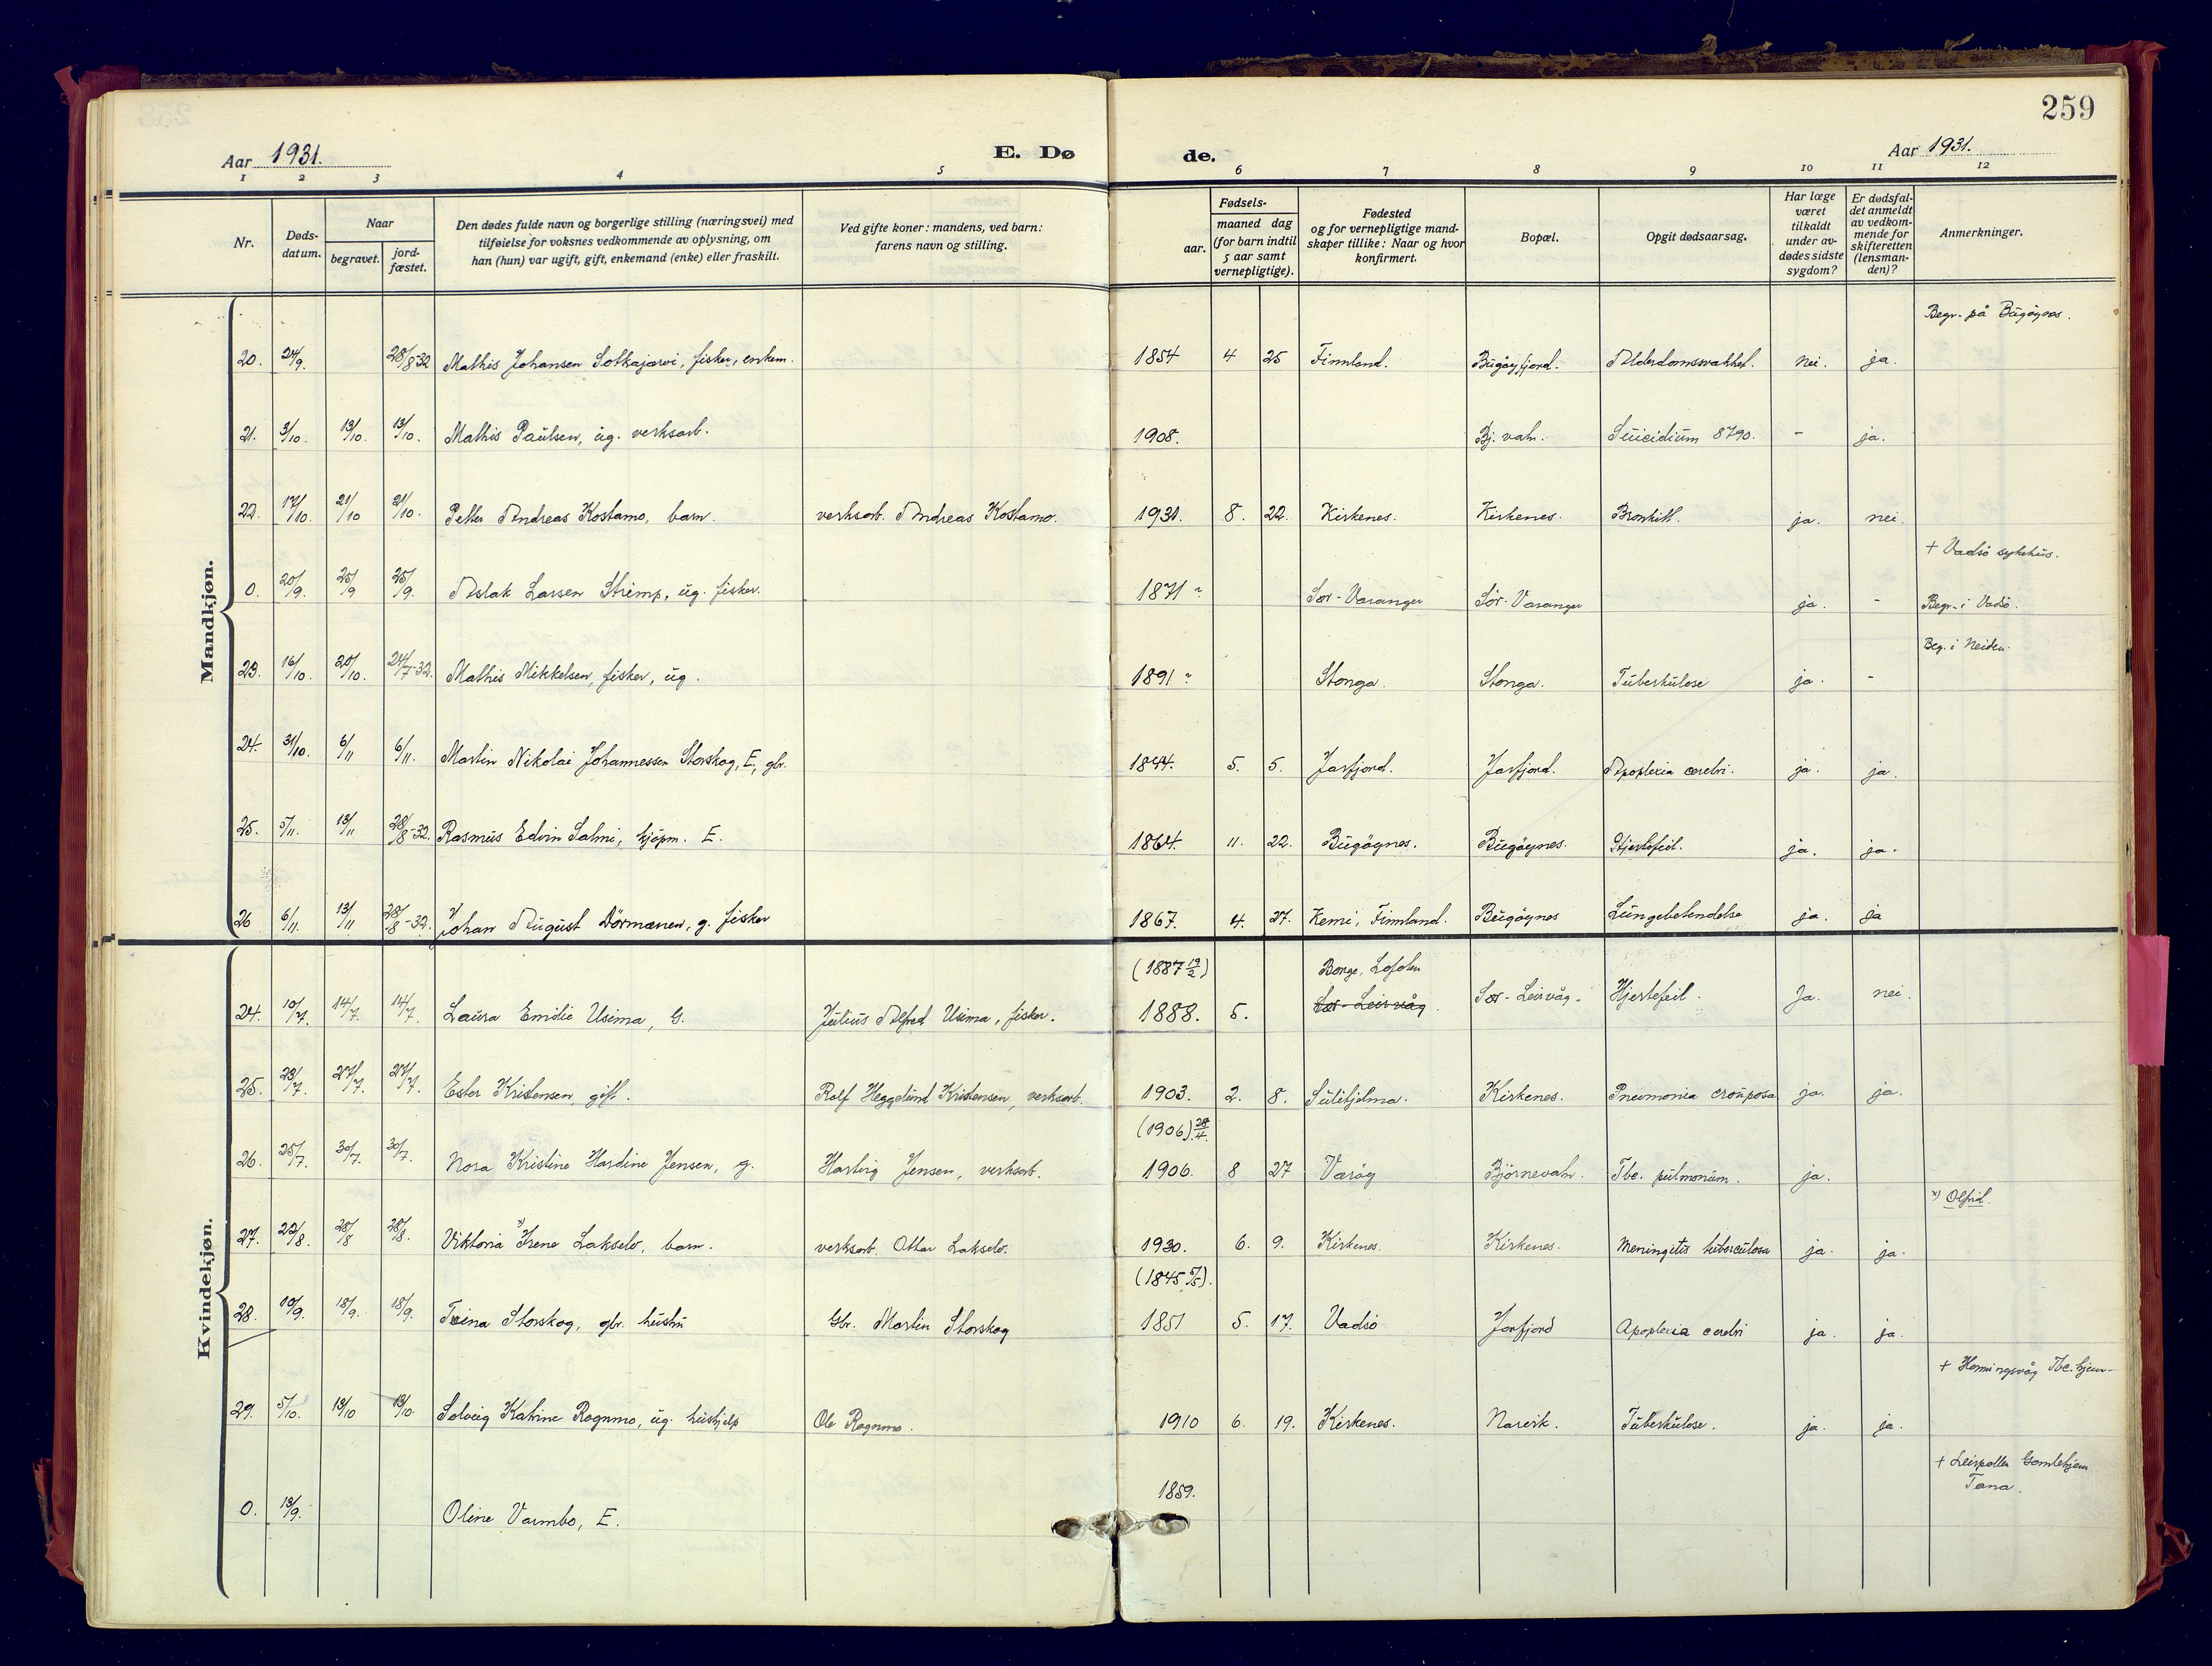 259
Aar 1931.
E. Dø
de.
Aar 1931.
1 2 3 4 5 6 7 8 9 10 11 12
Nr.
Døds-
datum.
Naar
begravet.
jord-
fæstet.
Den dødes fulde navn og borgerlige stilling (næringsvei) med
tilføielse for voksnes vedkommende av oplysning, om
han (hun) var ugift, gift, enkemand (enke) eller fraskilt.
Ved gifte koner: mandens, ved barn:
farens navn og stilling.
Fødsels-
aar.
maaned dag
(for barn indtil
5 aar samt
vernepligtige).
Fødested
og for vernepligtige mand-
skaper tillike: Naar og hvor
konfirmert.
Bopæl.
Opgit dødsaarsag.
Har læge
været
tilkaldt
under av-
dødes sidste
sygdom?
Er dødsfal-
det anmeldt
av vedkom-
mende for
skifteretten
(lensman-
den)?
Anmerkninger.
Mandkjøn.
Begr. på Bugøynes.
20. 24/9. 28/8-32 Mathis Johansen Sotkajærvi, fisker, enkem. 1854 4 25 Finnland. Bugøyfjord. Alderdomsvakhet. nei. ja.
21. 3/10. 13/10. 13/10. Mathis Paulsen, ug. verksarb. 1908. Bj. vatn. Suicidium 8790. - ja.
22. 17/10. 21/10 21/10. Petter Andreas Kostamo, barn. verksarb. Andreas Kostamo. 1931. 8. 22. Kirkenes. Kirkenes. Bronkitt. ja. nei.
+ Vadsø sykehus.
0. 20/9. 25/9 25/9. Aslak Larsen Strimp, ug. fisker. 1871 ? Sør-Varanger Sør-Varanger ja. - Begr. i Vadsø.
Beg. i Neiden.
23. 16/10. 20/10. 24/7-32. Mathis Mikkelsen, fisker, ug. 1891 ? Stonga. Stonga. Tuberkulose ja. -
24. 31/10. 6/11 6/11. Martin Nikolai Johannessen Storskog, E, gbr. 1844. 5. 5. Jarfjord. Jarfjord. Apoplexia cerebri. ja. ja.
25. 5/11. 13/11 28/8-32. Rasmus Edvin Salmi, kjøpm. E. 1864. 11. 22. Bugøynes. Bugøynes. Hjertefeil. ja. ja.
26 6/11. 13/11 28/8-32. Johan August Dørmænen, g. fisker 1867. 4. 27. Kemi, Finnland. Bugøynes Lungebetendelse ja. ja
Kvindekjøn.
(1887 19/2) Borge, Lofoten
24. 10/7. 14/7. 14/7. Laura Emilie Usima, G. Julius Alfred Usima, fisker. 1888. 5. Sør-Leirvåg. Sør-Leirvåg. Hjertefeil. Ja. nei.
25. 23/7. 27/7. 27/7. Ester Kristensen, gift. Rolf Heggelund Kristensen, verksarb. 1903. 2. 8. Sulitjelma. Kirkenes. Pneumonia crouposa ja. ja.
(1906) 28/4.
26. 25/7. 30/7. 30/7. Nora Kristine Hardine Jensen, g. Hartvig Jensen, verksarb. 1906. 8 27 Værøy Bjørnevatn. Tbc. pulmonum. ja.
x) Olfrid.
27. 22/8. 28/8 28/8. Viktoria x) Irene Lakselv, barn. verksarb. Ottar Lakselv. 1930. 6. 9. Kirkenes. Kirkenes. Meningitis tuberculosa ja. ja.
(1845 5/5).
28. 10/9. 18/9. 18/9. Trina Storskog, gbr. hustru Gbr. Martin Storskog 1851 5. 17. Vadsø Jarfjord Apoplexia cerebri ja. ja.
+ Honningsvåg Tbc. hjem-
29. 5/10. 13/10 13/10. Solveig Katrine Rognmo, ug. hushjelp Ole Rognmo. 1910 6. 19. Kirkenes. Narvik. Tuberkulose. ja. ja.
+ Leirpollen Gamlehjem
Tana.
0. 13/9. Oline Varmbo, E. 1859.